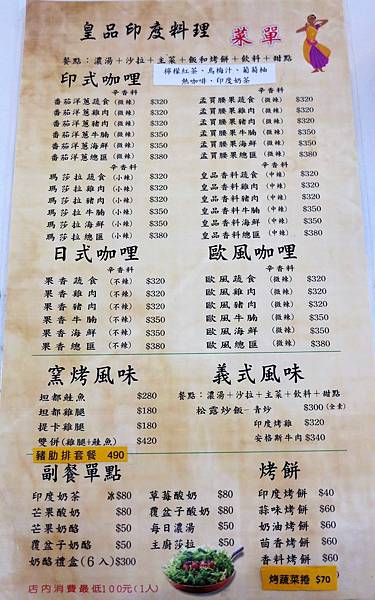 皇品印度料理 菜單
餐點：濃湯＋沙拉＋主菜＋飯和烤餅＋飲料＋甜點
檸檬紅茶、烏梅汁、葡萄柚
熱咖啡、印度奶茶
印式咖哩
辛香料
番茄洋蔥蔬食 (微辣) $320
番茄洋蔥雞肉 (微辣) $320
番茄洋蔥豬肉 (微辣) $320
番茄洋蔥牛腩 (微辣) $350
番茄洋蔥海鮮 (微辣) $350
番茄洋蔥總匯 (微辣) $380
辛香料
孟買腰果蔬食 (微辣) $320
孟買腰果雞肉 (微辣) $320
孟買腰果豬肉 (微辣) $320
孟買腰果牛腩 (微辣) $350
孟買腰果海鮮 (微辣) $350
孟買腰果總匯 (微辣) $380
辛香料
瑪莎拉蔬食 (小辣) $320
瑪莎拉雞肉 (小辣) $320
瑪莎拉豬肉 (小辣) $320
瑪莎拉牛腩 (小辣) $350
瑪莎拉海鮮 (小辣) $350
瑪莎拉總匯 (小辣) $380
辛香料
皇品香料蔬食 (中辣) $320
皇品香料雞肉 (中辣) $320
皇品香料豬肉 (中辣) $320
皇品香料牛腩 (中辣) $350
皇品香料海鮮 (中辣) $350
皇品香料總匯 (中辣) $380
日式咖哩
辛香料
果香蔬食 (不辣) $320
果香雞肉 (不辣) $320
果香豬肉 (不辣) $320
果香牛腩 (不辣) $350
果香海鮮 (不辣) $350
果香總匯 (不辣) $380
歐風咖哩
辛香料
歐風蔬食 (微辣) $320
歐風雞肉 (微辣) $320
歐風豬肉 (微辣) $320
歐風牛腩 (微辣) $350
歐風海鮮 (微辣) $350
歐風總匯 (微辣) $380
窯烤風味
坦都鮭魚 $280
坦都雞腿 $180
提卡雞腿 $180
雙併(雞腿+鮭魚) $420
豬肋排套餐 490
義式風味
餐點：濃湯＋沙拉＋主菜＋飲料＋甜點
松露炒飯-青炒 $300(全素)
印度烤雞 $320
安格斯牛肉$340
副餐單點
印度奶茶 冰$80
芒果酸奶 $80
芒果奶酪 $50
覆盆子奶酪 $50
奶酪禮盒(6入)$300
草莓酸奶 $80
覆盆子酸奶 $80
每日濃湯 $50
主廚莎拉 $50
烤餅
印度烤餅 $40
蒜味烤餅 $60
奶油烤餅 $60
茴香烤餅 $60
香料烤餅 $60
烤蔬菜捲 $70
店内消費最低100元(1人)